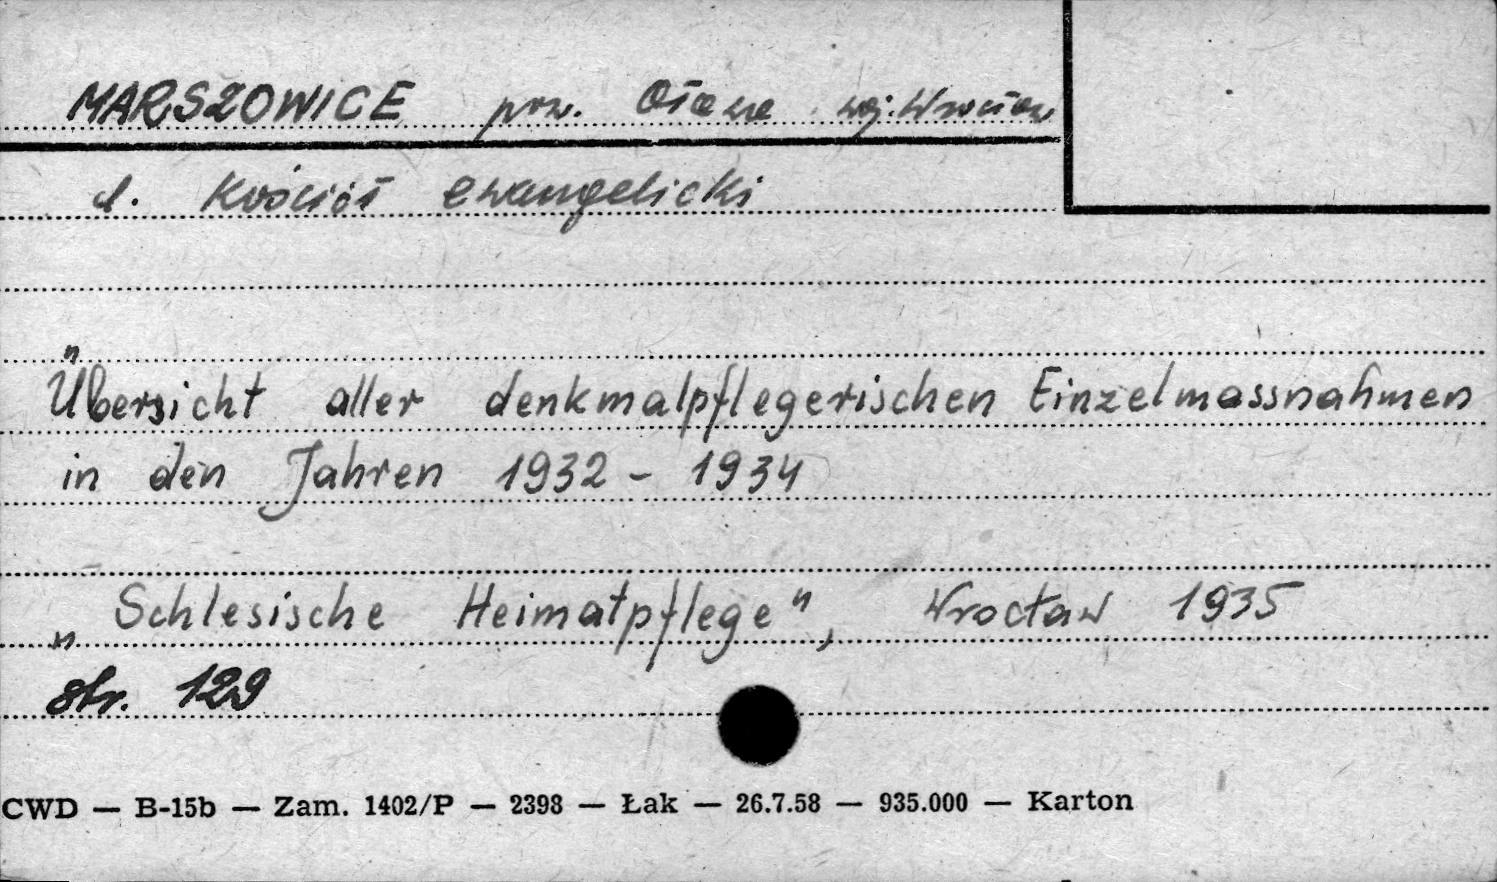 MARSZOWICE pow. Oława woj. Wrocław
d. Kościół ewangelicki
"Übersicht aller denkmalpflegerischen Einzelmassnahmen
in den Jahren 1932 - 1934
"Schlesische Heimatpflege", Wrocław 1935
str. 129
CWD — B-15b — Zam. 1402/P — 2398 — Łak — 26.7.58 — 935.000 — Karton